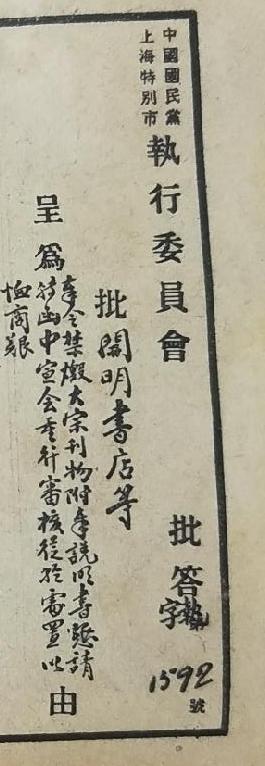 中國國民黨
上海特別市
執行委員會
批答
執字
1592號
批開明書店等
呈為
奉令禁燬大宗刊物附奉說明書懇請
轉函中宣会重行審核從輕處置以
恤商艱
由